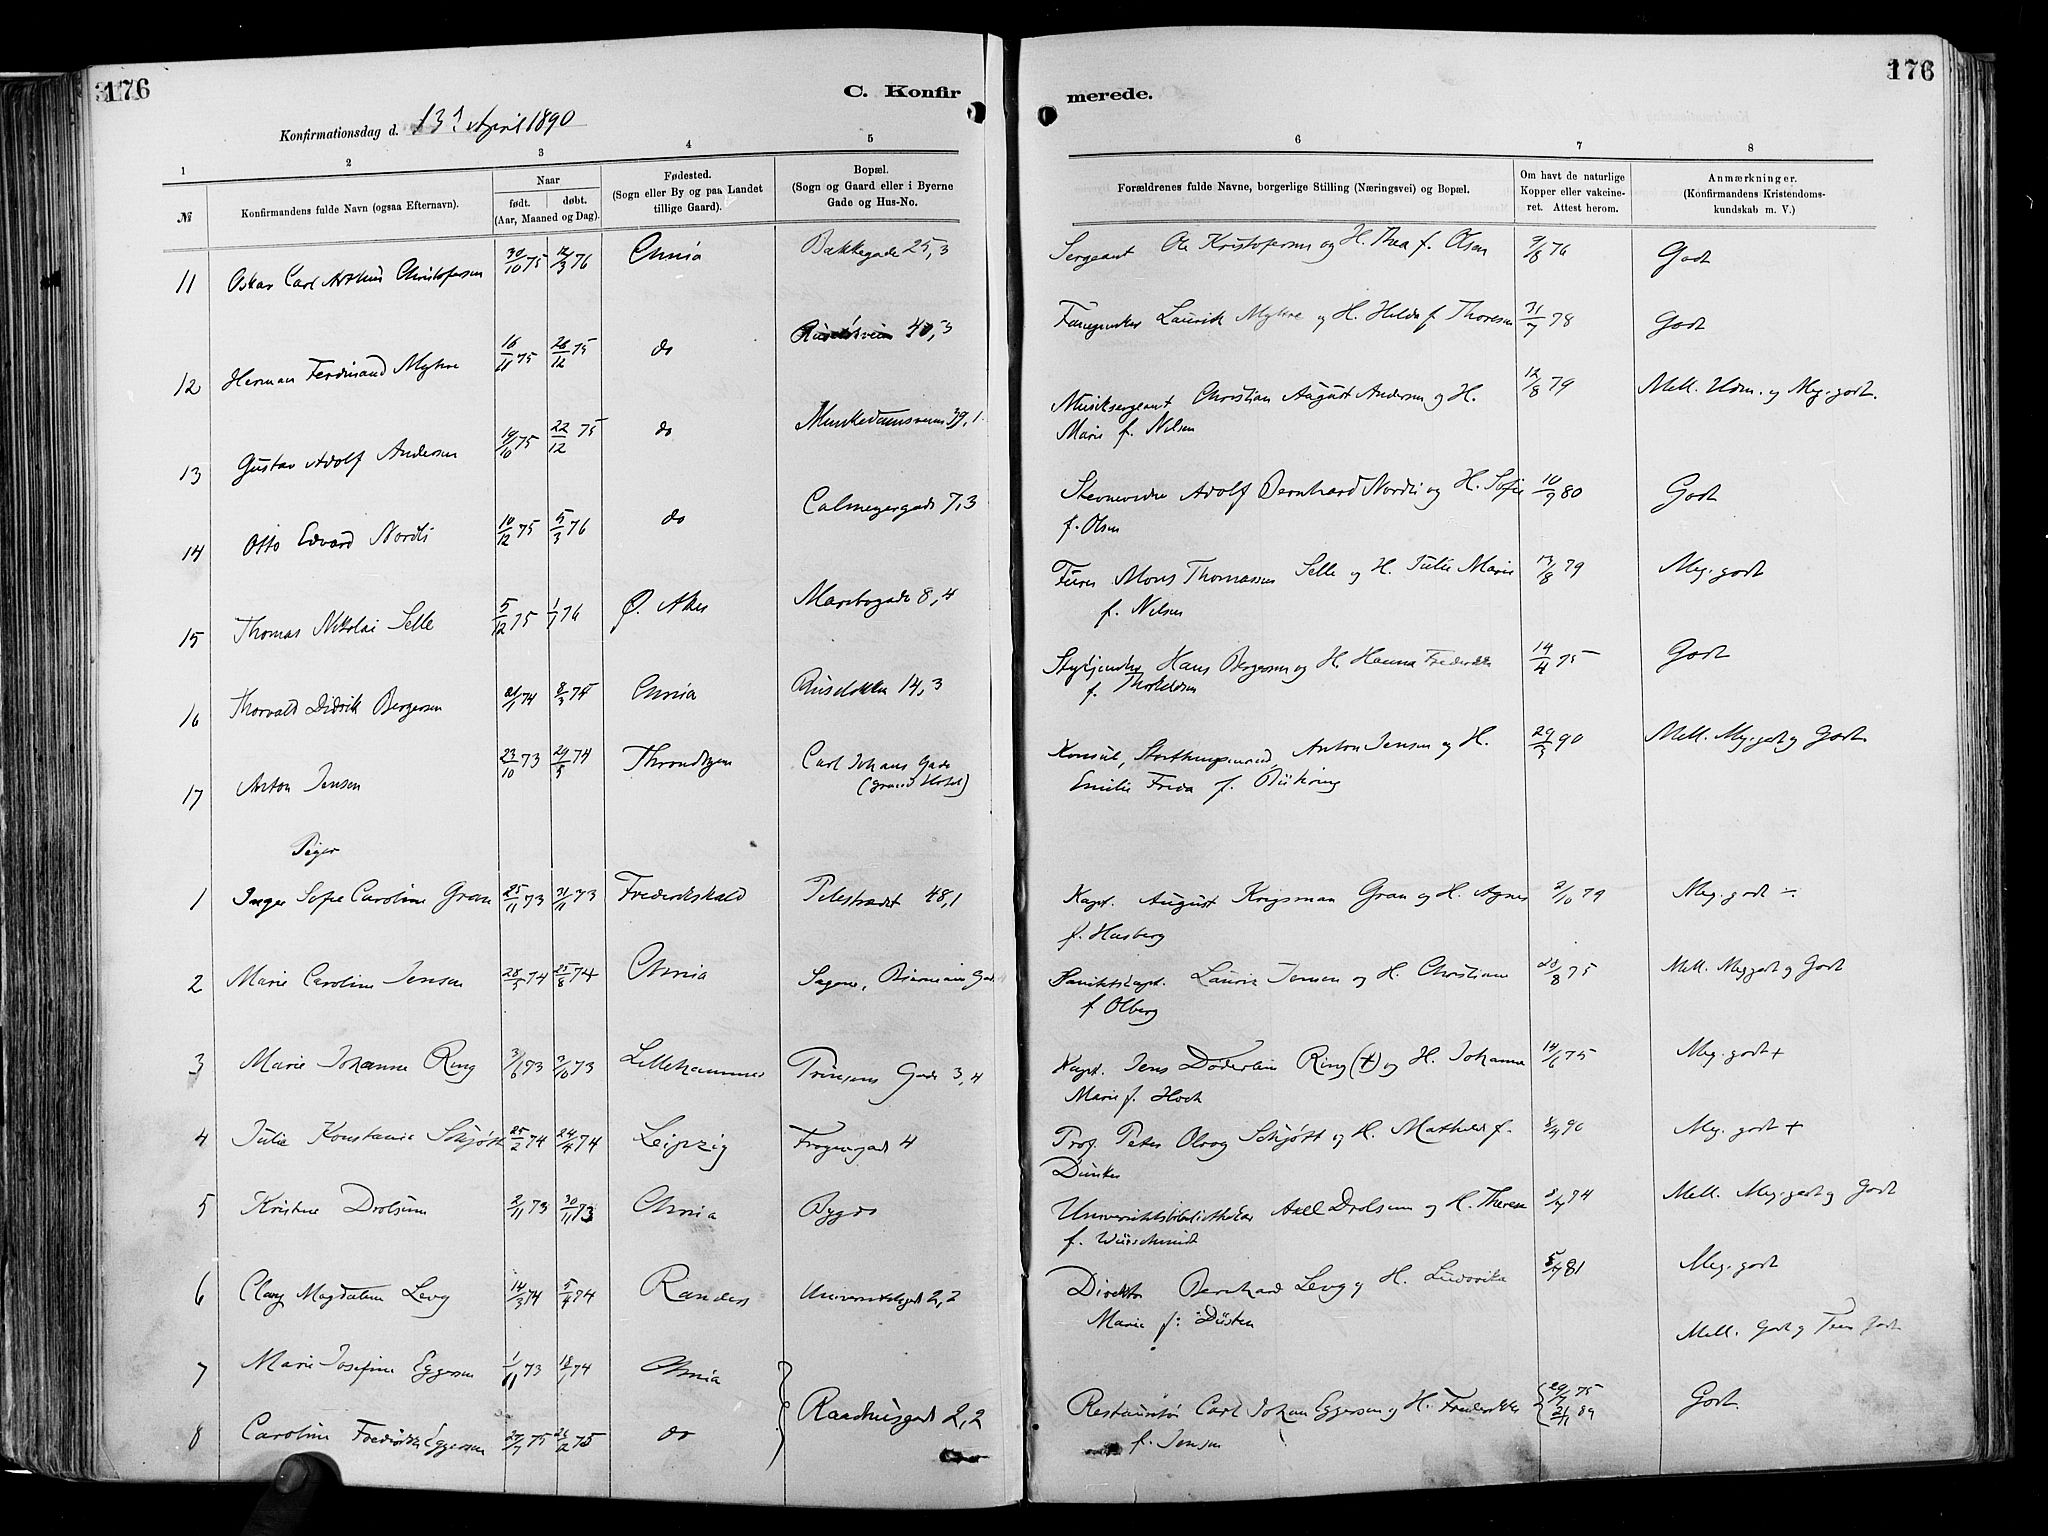 176
C. Konfir
Konfirmationsdag d. 13de April 1890
1
2
3
4
5
№
Konfirmandens fulde Navn (ogsaa Efternavn).
Naar
født. døbt.
(Aar, Maaned og Dag).
Fødested.
(Sogn eller By og paa Landet
tillige Gaard).
Bopæl.
(Sogn og Gaard eller i Byerne
Gade og Hus-No.
11 Oskar Carl Arthur Christofersen 30/10 75 12/3 76 Chria Bakkegade 25,3
12 Herman Ferdinand Myhre 16/11 75 26/12 75 do 40,3
13 Gustav Adolf Andersen 19/10 75 22/12 75 do Munkedamsveien 39,1
14 Otto Edvard Nordli 10/12 75 5/3 76 do Calmeyergade 7,3
15 Thomas Nikolai Selle 5/12 75 1/1 76 Ø. Aker Maribogade 8,4
16 Thorvald Didrik Bergersen 21/1 74 8/3 75 Chria Ruseløkken 14,3
17 Anton Jensen 23/10 73 29/5 74 Throndhjem Carl Johans Gade
(Grand Hotel)
Piger
1 Inga Sofie Caroline Gran 25/11 73 31/11 73 Frederikshald Pilestrædet 48,1
2 Marie Caroline Jensen 28/5 74 25/8 74 Chria Sagene,
3 Marie Johanne Ring 3/6 73 3/10 73 Lillehammer Gade 3,4
4 Julie Konstance Schjøtt 25/2 74 24/4 74 Leipzig Frognergade 4
5 Kristine Drolsum 2/11 73 30/11 73 Chria Bygdø
6 Clary Magdalene Levy 14/3 74 5/4 74 Randers Universitetsgade 2,2
7 Marie Josefine Eggersen 1/11 73 18/1 74 Chria
Raadhusgade 2,2
8 Caroline Fredrikke Eggersen 27/7 75 26/12 75 do
176
merede.
6
7
8
Forældrenes fulde Navne, borgerlige Stilling (Næringsvei) og Bopæl.
Om havt de naturlige
Kopper eller vakcine-
ret. Attest herom.
Anmærkninger.
(Konfirmandens Kristendoms-
kundskab m. V.)
Sergeant Ole Kristofersen og H. Thea f. Olsen 9/8 76 Godt
Laurik Myhre og H. Hilda f. Thoresen 31/7 78 Godt
Musiksergeant Christian August Andersen og H. 12/8 79 Mell. Udm. og Meg. godt.
Marie f. Nilsen
Adolf Bernhard Nordli og H. Sofie 10/9 80 Godt
f. Olsen
Furer Mons Thomassen Selle og H. Julie Marie 13/8 79 Meg. godt
f. Nilsen
Hans Bergersen og H. Hanna Fredrikke 14/4 75 Godt
f. Thorkildsen
Konsul, Storthingsmand, Anton Jensen og H. 29/3 90 Mell. Meg. godt og Godt
Emilie Frida f. Büking
Kapt. August Krigsman Gran og H. Agnes 2/10 79 Meg. godt ÷
f. Husberg
Laurits Jensen og H. Christiane 28/8 75 Mell. Meg godt og Godt
f Olberg
Kapt. Jens Døderlein Ring (+) og H. Johanne 14/6 75 Meg. godt +
Marie f. Hoch
Prof. Peter Olrog Schjøtt og H. Mathilde f. 8/4 90 Meg. godt +
Dunker
Universitetsbibliothekar Axel Drolsum og H. Therese 8/7 74 Mell. Meg. godt og Godt
f. Würschmidt
Direktør Bernhard Levy og H. Ludovika 5/7 81 Meg. godt
Marie f.
Mell. Godt og Tem. Godt
Restauratør Carl Johan Eggersen og H. Fredrikke 29/6 75 Godt
f. Jensen 21/1 89